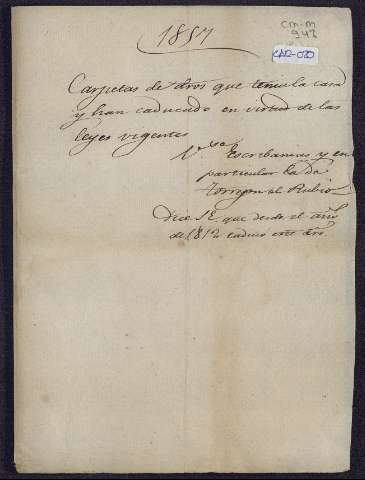 1857
CM-M
943
CAR-080
Carpetas de dros que tenia la casa
y han caducado en virtud de las
leyes vigentes
Escribanias y en
particular la de
Torrejon el Rubio
Dice S.E. que desde el año
de 1812 caducó este dro.